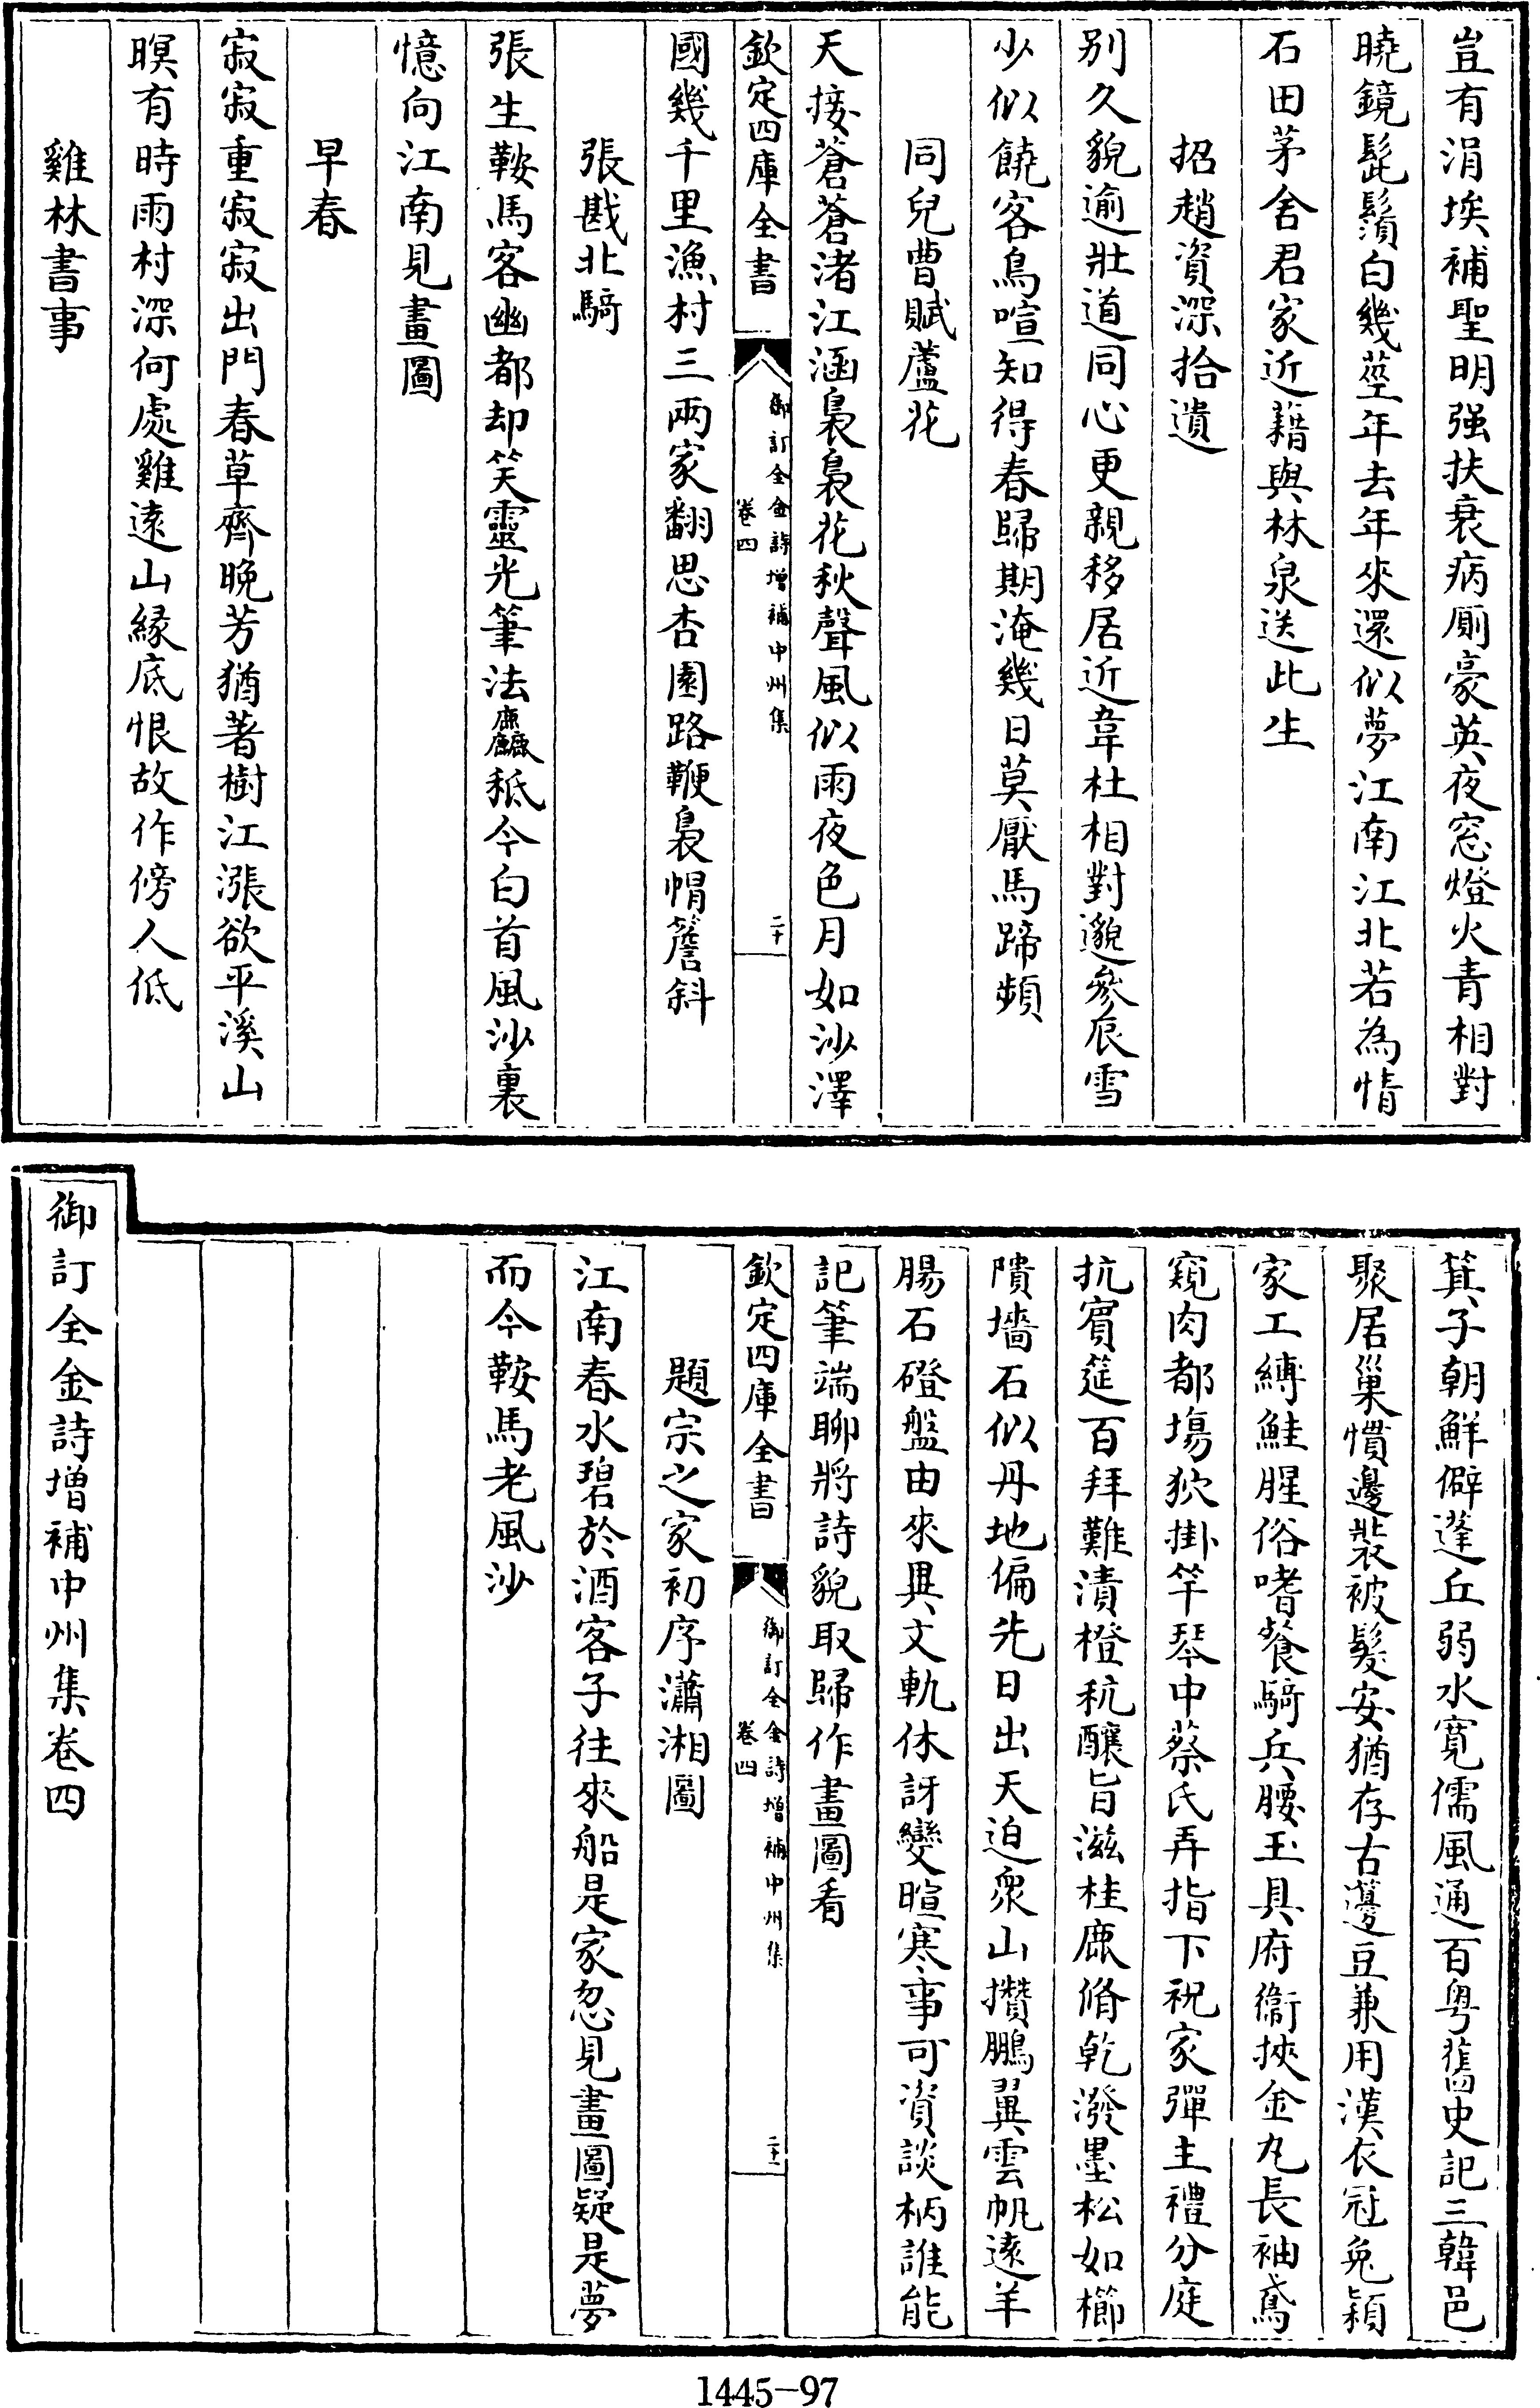 豈有涓埃補聖明强扶衰病厠豪英夜窓燈火青相對
曉鏡髭鬚白幾莖年去年來還似夢江南江北若為情
石田茅舍君家近藉與林泉送此生
招趙資深拾遺
別久貌逾壯道同心更親移居近韋杜相對邈參辰雪
少似饒客鳥喧知得春歸期淹幾日莫厭馬蹄頻
同兒曹賦蘆花
天接蒼蒼渚江涵裊裊花秋聲風似雨夜色月如沙澤
欽定四庫全書
御訂全金詩增補中州集
卷四
二十
國幾千里漁村三兩家翻思杏園路鞭裊帽簷斜
張戡北騎
張生鞍馬客幽都却笑靈光筆法麤秪今白首風沙裏
憶向江南見畫圖
早春
寂寂重寂寂出門春草齊晚芳猶著樹江漲欲平溪山
暝有時雨村深何處雞遠山緣底恨故作傍人低
雞林書事
箕子朝鮮僻蓬丘弱水寛儒風通百粤舊史記三韓邑
聚居巢慣邊裝被髮安猶存古籩豆兼用漢衣冠兔穎
家工縛鮭腥俗嗜餐騎兵腰玉具府衛挾金丸長袖鳶
窺肉都塲狄掛竿琴中蔡氏弄指下祝家彈主禮分庭
抗賓筵百拜難漬橙秔釀旨滋桂鹿脩乾潑墨松如櫛
隤墻石似丹地偏先日出天迫衆山攢鵬翼雲帆遠羊
腸石磴盤由來異文軌休訝變暄寒事可資談柄誰能
記筆端聊將詩貌取歸作畫圖看
欽定四庫全書
御訂全金詩增補中州集
卷四
二十一
題宗之家初序瀟湘圖
江南春水碧於酒客子往來船是家忽見畫圖疑是夢
而今鞍馬老風沙
御訂全金詩增補中州集卷四
1445-97